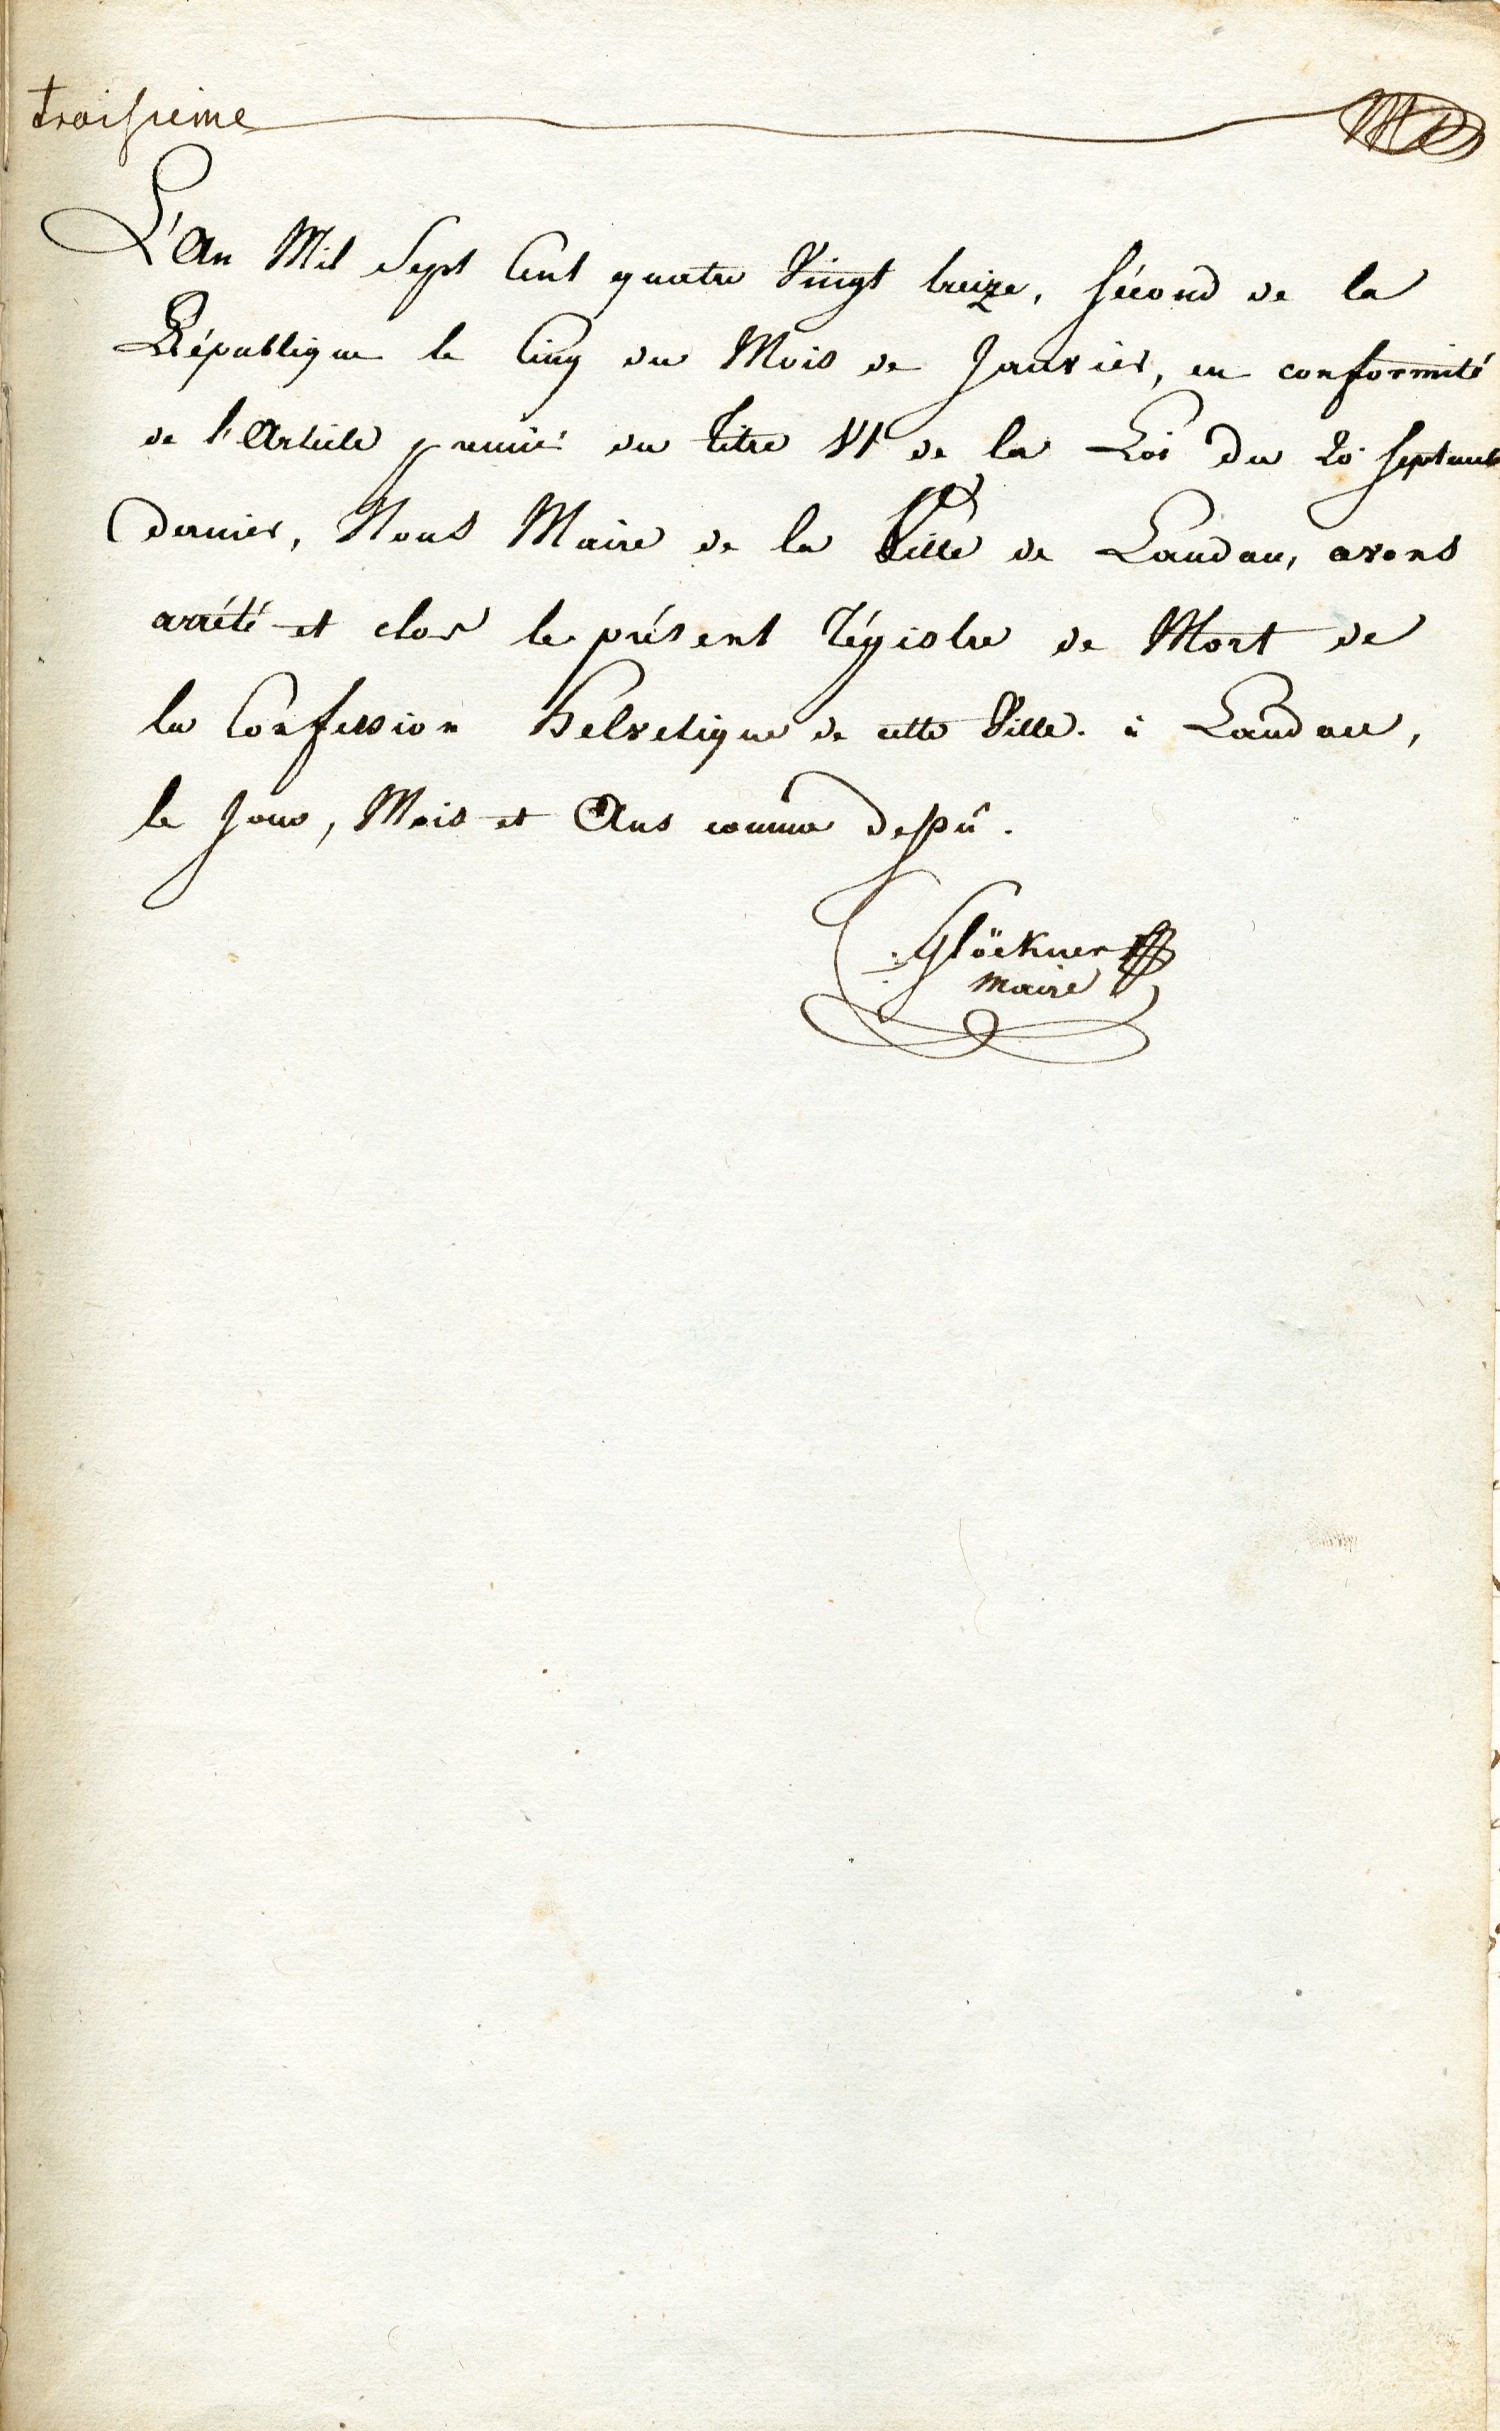 troisieme
L'An Mil Sept Cent quatre Vingt treize, sécond de la
République le Cinq du Mois de Janvier, en conformité
de l'Article premié du Titre VI de la Loi du 20 Septemb
dernier, Nous Maire de la Ville de Landau, avons
arrété et clos le présent Régistre de Mort de
la Confession Helvetique de cette Ville. à Landau,
le Jour, Mois et Ans comme dessû.
Glöckner
Maire